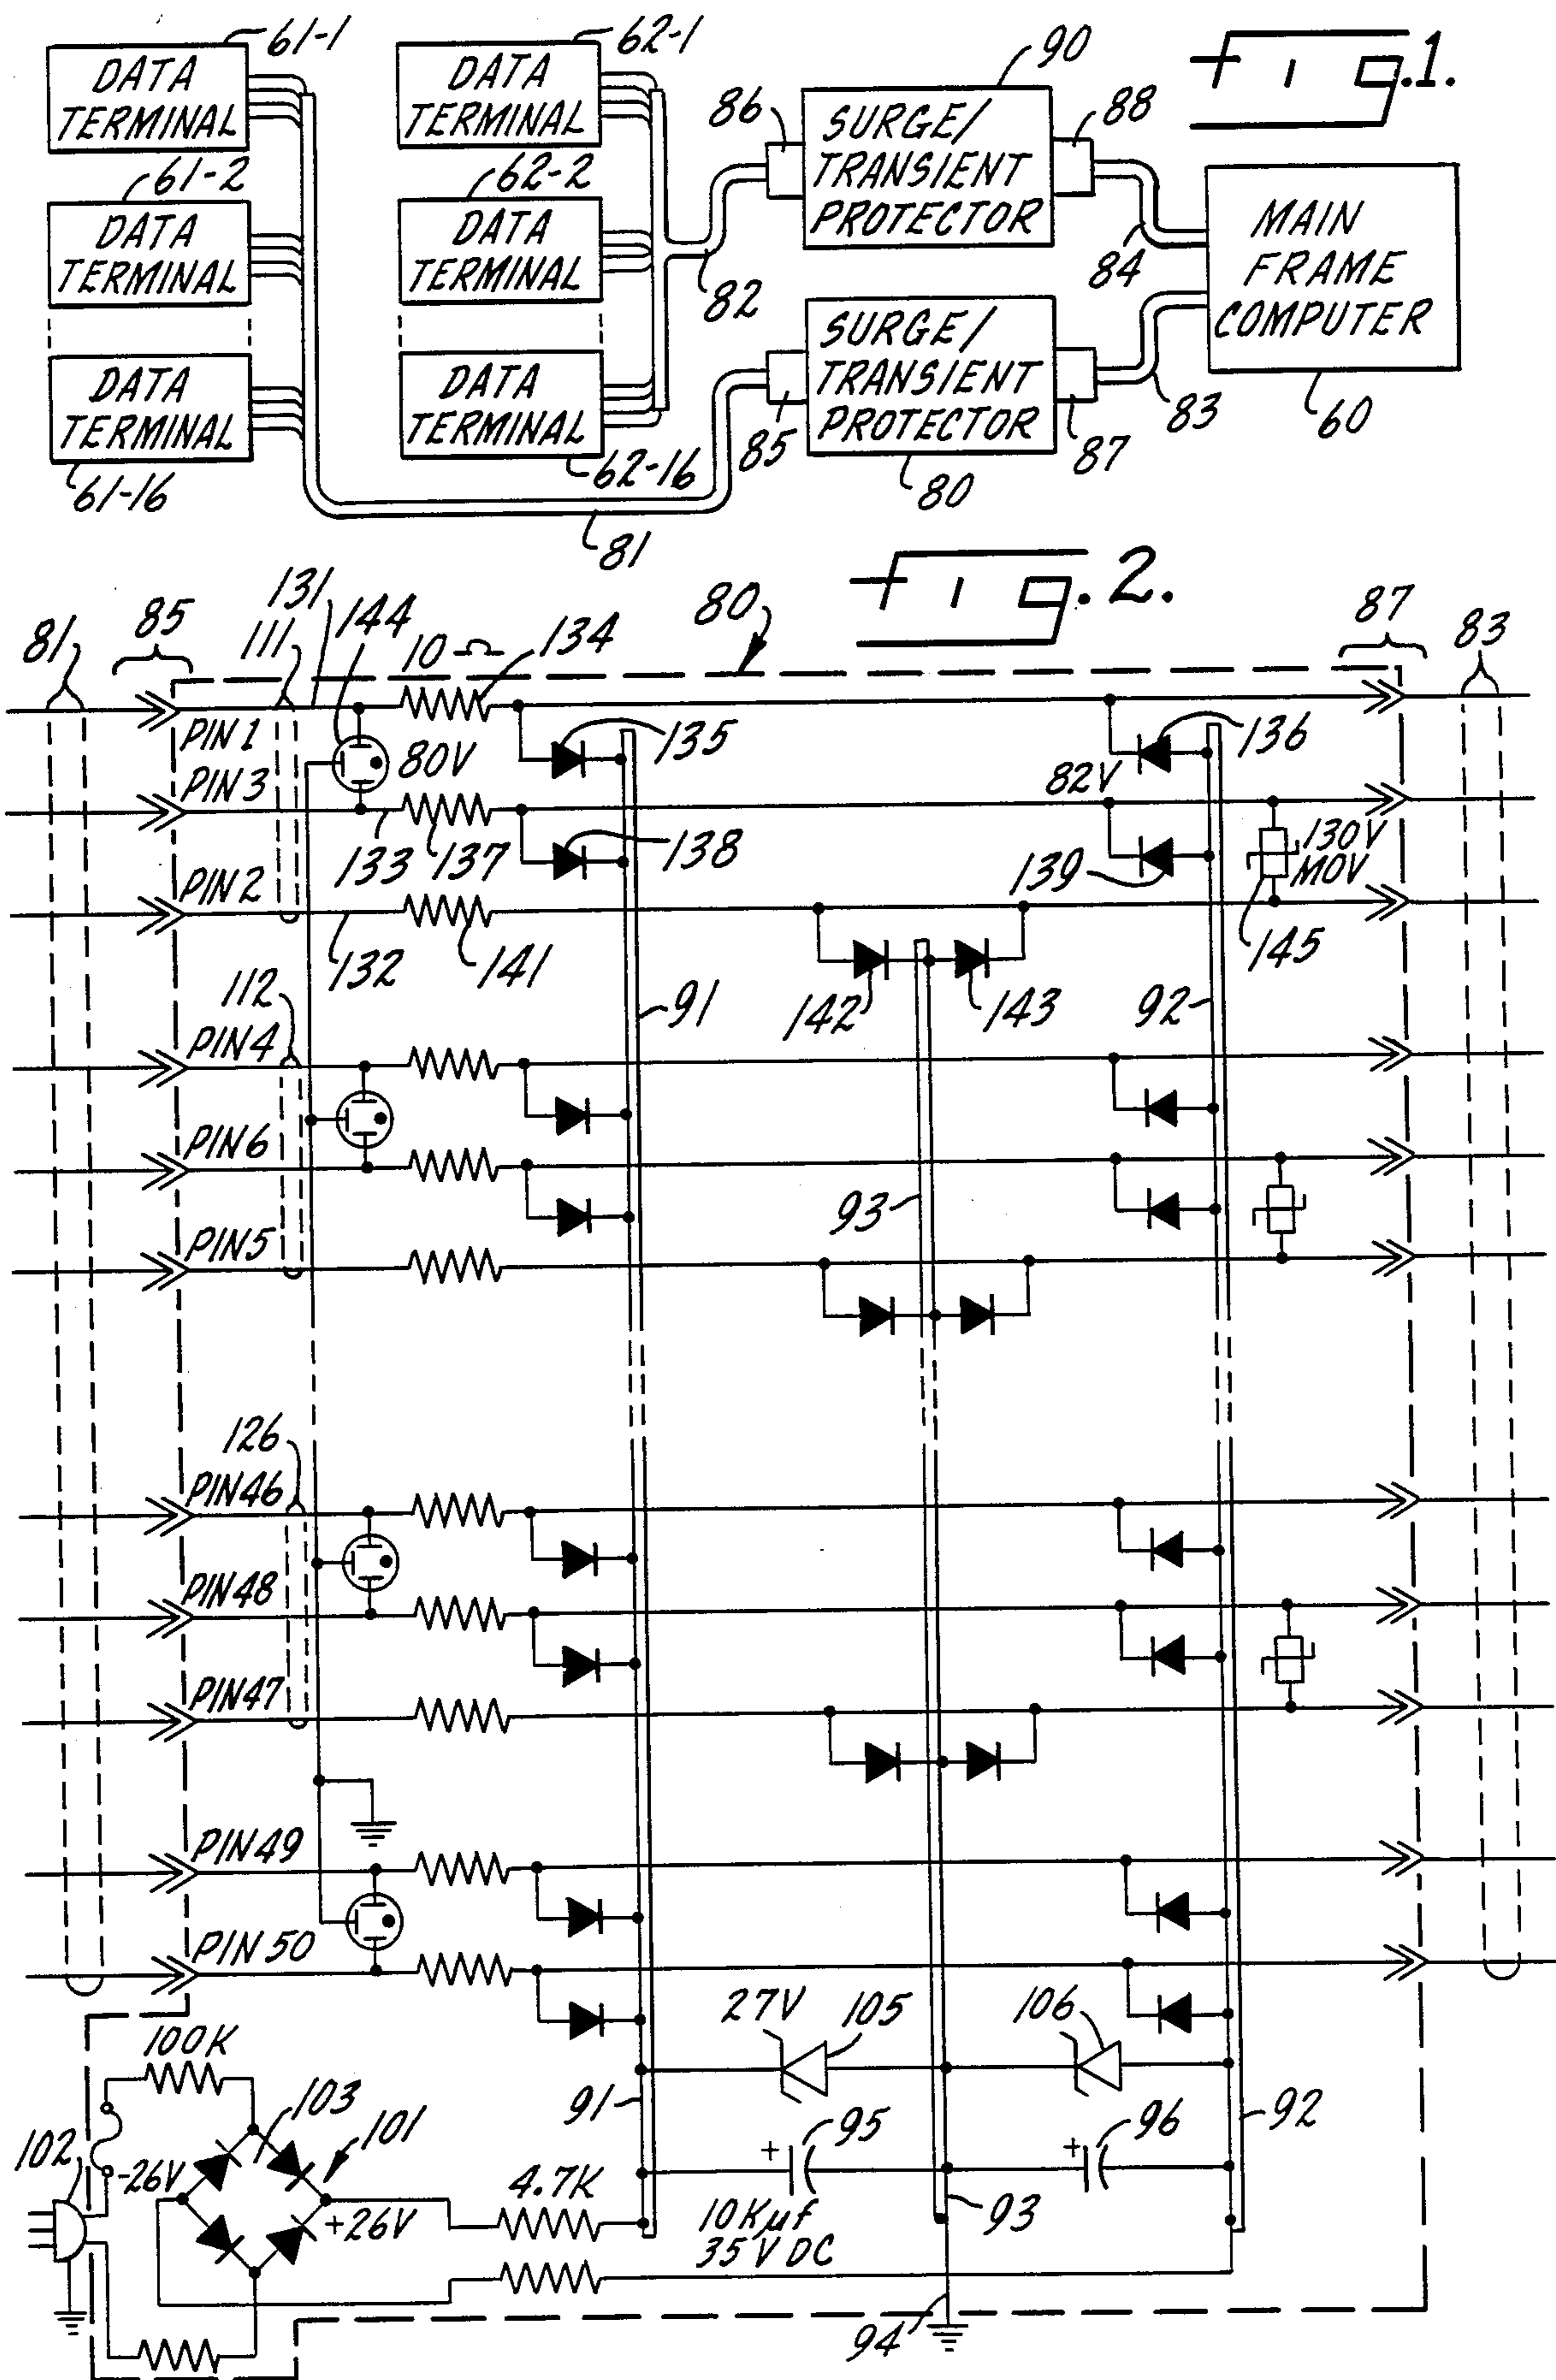 fig.1.
61-1
DATA
TERMINAL
61-2
DATA
TERMINAL
DATA
TERMINAL
61-16
62-1
DATA
TERMINAL
62-2
DATA
TERMINAL
DATA
TERMINAL
62-16
81
82
86
90
SURGE/
TRANSIENT
PROTECTOR
88
84
85
SURGE/
TRANSIENT
PROTECTOR
80
87
83
MAIN
FRAME
COMPUTER
60
fig.2.
81
85
111
131
144
10 Ω
134
80
87
83
PIN 1
80V
135
136
PIN 3
133
137
138
82V
139
130V
MOV
PIN 2
132
141
142
143
145
112
91
92
PIN 4
PIN 6
93
PIN 5
126
PIN 46
PIN 48
PIN 47
PIN 49
PIN 50
27V
105
106
100K
103
101
102
-26V
+26V
4.7K
91
+
95
+
96
92
10Kµf
35V DC
93
94